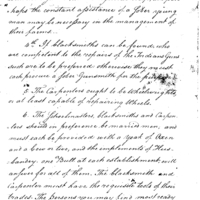 haps the constant assistance of a Joker young
man may be necessary in the management of
their farms.
4th. If blacksmiths can be found who
are competent to the repairs of the Indians guns
such are to be preferred otherwise they must
each procure a
5. The Carpenters ought to be
or at least capable of repairing Wheels.
6. The blacksmiths and Carpen-
ters should in preference be married men, and
must each be provided with a Yoke of Oxen
a Cow or two, and the impliments of Hus-
bandry. one at each establishment will
answer for all of them. The Blacksmith and
Carpenter must have the requisite tools of their
trades. The persons you may find most ready